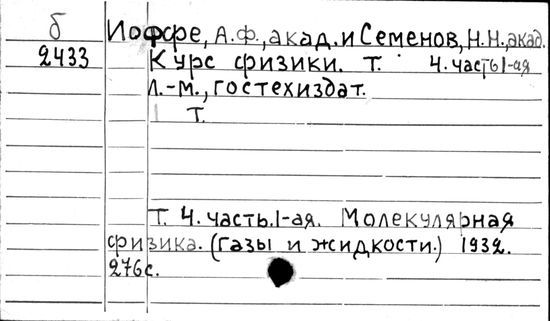 б
2433
Иоффе, А.Ф., акад. и Семенов, Н.Н., акад.
Курс физики. Т. 4. часть 1-ая
Л.-М., Гостехиздат.
Т.
Т. 4. часть. 1-ая. Молекулярная
физика. (Газы и жидкости.) 1932.
276 с.